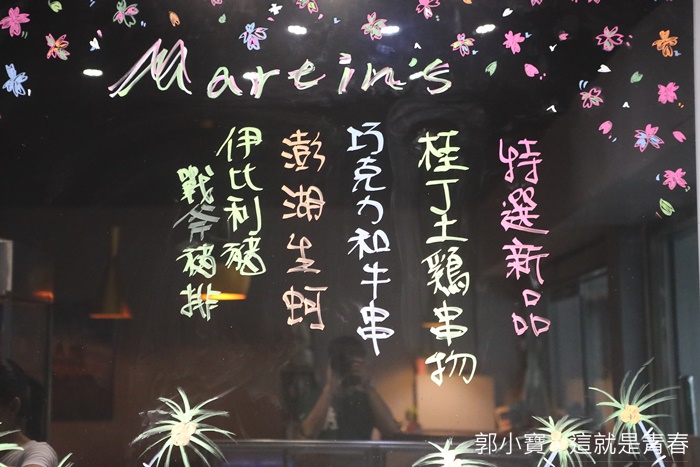 Martin's
特選新品
桂丁土鶏串物
巧克力和牛串
澎湖生蚵
伊比利豬
戰斧豬排
郭小寶 這就是青春